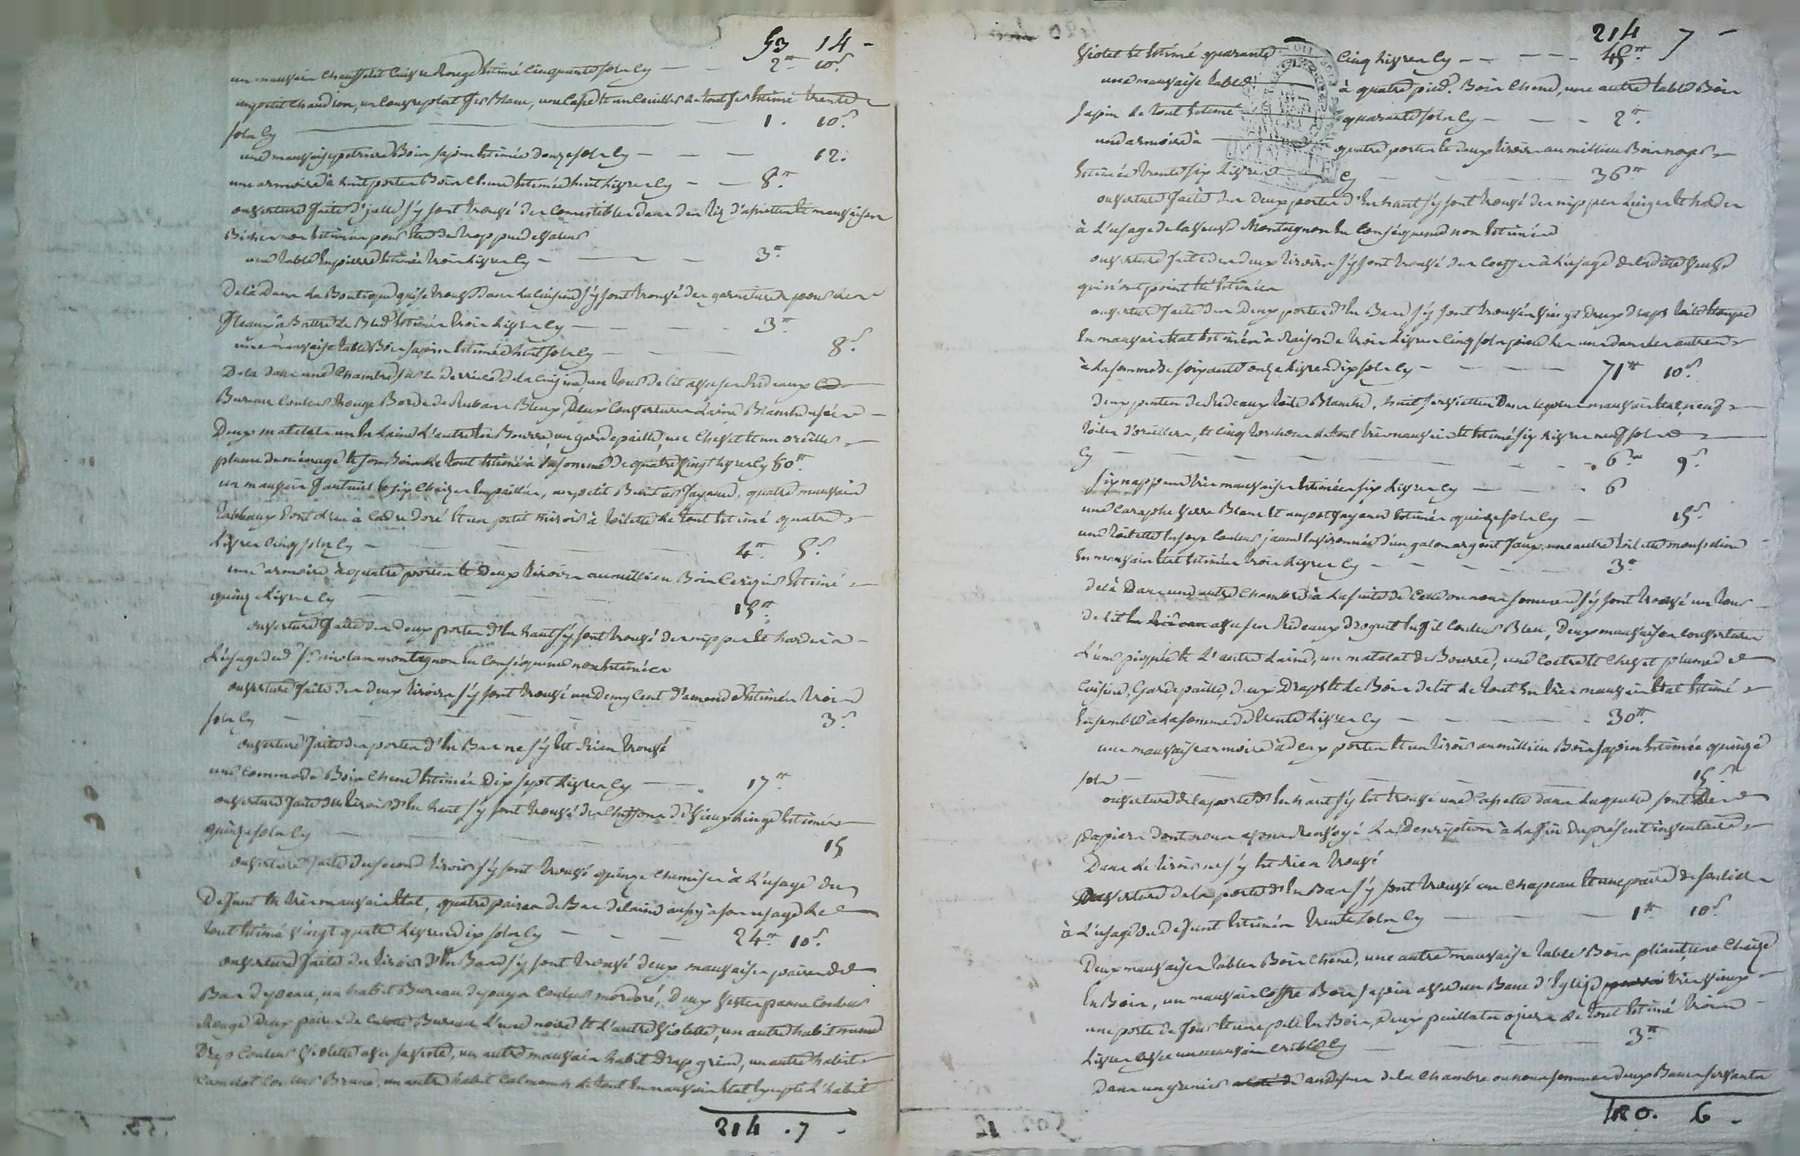 53 14 -
un mauvais chauffelit cuivre Rouge Estimé Cinquante sols Cy - - 2tt 10s
un petit chaudron, un couvreplat fer Blanc, une Casse et un Cuilles le tout fer Estimé trente
sols Cy - - 1 . 10s
une mauvaise petriere Bois sapin Estimée douze sols Cy - - - 12.
une armoire à huit portes Bois Chene Estimée huit Livres Cy - - 8tt
ouverture faite d'jcelle s'y sont trouvé des Comestibles dans des d'assiettes et mauvaises
non Estimées pour être de trop peu de valeur
une table en pierre Estimée trois Livres Cy - - - 3tt
De là Dans la Boutique qui se trouve dans la Cuisine s'y sont trouvé des garnitures pour des
fleaux à Battre le Bled Estimées trois Livres Cy - - - 3tt
une mauvaise table Bois sapin Estimée huit sols Cy - - - 8s
De là dans une Chambre sur le derriere de la Cuisine, un tour de lit avec ses Rideaux
Bureau Couleur Rouge Bordé de Ruban Bleux, Deux Couvertures Laine Blanche usées
Deux matelats un en Laine L'autre en Bourre, un gardepaille, un Chevet et un oreiller
plume de menage et son Bois le tout Estimé à la somme de quatre vingt Livres Cy 80tt
un mauvais fauteuil et six Chaises Empaillées, un petit en fayance, quatre mauvais
tableaux dont à Cadre doré et un petit miroir à toilette le tout Estimé quatre
Livres Cinq sols Cy - - 4tt 5s
une armoire à quatre portes et Deux tiroirs au millieu Bois Cerisier Estimé
quinze Livres Cy - - 15tt
ouverture faite des deux portes d'En haut s'y sont trouvé des nippes et hardes à
L'usage dud. Sr. nicolas montagnon En Conséquence non Estimées
ouverture faite des deux tiroirs s'y sont trouvé un demy Cent d'amendes Estimées trois
sols Cy - - 3s
ouverture faite des portes d'En Bas ne s'y Est Rien trouvé
une Commode Bois Chene Estimée Dix sept Livres Cy - - 17tt
ouverture faite du tiroir d'En haut s'y sont trouvé des Chiffons de vieux Linge Estimés
quinze sols Cy - - 15
ouverture faite du second tiroir s'y sont trouvé quinze Chemises à L'usage du
Defunt En très mauvais Etat, quatre paires de Bas de laine aussy à son usage Le
tout Estimé vingt quatre Livres dix sols Cy - - 24tt 10s
ouverture faite du tiroir d'En Bas s'y sont trouvé deux mauvaises paires de
Bas un habit Bureau Couleur mordoré, deux vestes panne Couleur
Rouge Deux paires de Culotte Bureau L'une noire et L'autre violette, un autre habit
Drap Couleur violette avec sa veste, un autre mauvais habit Drap gris, un autre habit
Camelot Couleur Brune, un autre habit Calmande le tout En mauvais Etat Excepté L'habit
214 . 7 -
214 7 -
violet et Estimé quarante Cinq Livres Cy - - 45tt
une mauvaise table à quatre pieds Bois Chene, une autre table Bois
sapin le tout Estimé quarante sols Cy - - 2tt
une armoire à quatre portes et deux tiroirs au millieu Bois noyer
Estimée trente six Livres Cy - 36tt
ouverture faite des Deux portes d'En haut s'y sont trouvé des nippes Linges et hardes
à L'usage de la veuve Montagnon En Conséquence non Estimées
ouverture faite des deux tiroirs s'y sont trouvé des Coeffes à L'usage de ladite veuve
qui n'ont point été Estimées
ouverture faite des Deux portes d'En Bas s'y sont trouvés vingt deux draps toile
En mauvais Etat Estimés à Raison de trois Livres Cinq sols piece les uns dans les autres
à la somme de soixante onze Livres dix sols Cy - - 71tt 10s
deux pentes de Rideaux toile Blanche, huit serviettes mauvais Etat neuf
toiles d'oreillers, et Cinq le tout très mauvais et Estimé six Livres neuf sols
Cy - - 6tt 9s
six nappes très mauvaises Estimées six Livres Cy - - 6
une Caraphe verre Blanc et un pot fayance Estimés quinze sols Cy - 15s
une toilette En soye Couleur jaune Environnée d'un galon argent faux, une autre toilette mousseline
En mauvais Etat Estimées trois Livres Cy - - 3tt
de là Dans une autre Chambre à la suite de Celle ou nous sommes s'y sont trouvé un tour
de lit avec ses Rideaux droguet En fil Couleur Bleu, deux mauvaises Couvertures
L'une piquée et L'autre Laine, un matelat de Bourre, une Coetre et Chevet plumes de
Cuisine, Gardepaille, deux Draps et le Bois de lit le tout En très mauvais Etat Estimé
Ensemble à la somme de trente Livres Cy - - 30tt
une mauvaise armoire à deux portes et un tiroir au millieu Bois sapin Estimée quinze
sols - - 15s
ouverture de la porte d'En haut s'y Est trouvé une Cassete dans Laquelle sont des
papiers dont nous avons Renvoyé La Description à La fin du présent inventaire
Dans le tiroir ne s'y Est Rien trouvé
ouverture de la porte d'En Bas s'y sont trouvé un Chapeau et une paire de souliers
à L'usage du defunt Estimés trente sols Cy - - 1tt 10s
Deux mauvaises tables Bois Chene, une autre mauvaise table Bois pliant, une Chaise
En Bois, un mauvais Coffre Bois sapin avec un Banc d'Eglise très vieux
une porte de four et une pele En Bois, deux paillats osier le tout Estimé trois
Livres avec un mauvais Crible Cy - - 3tt
Dans un grenier au dessus de la Chambre ou nous sommes deux Bancs servants
420. 6 -